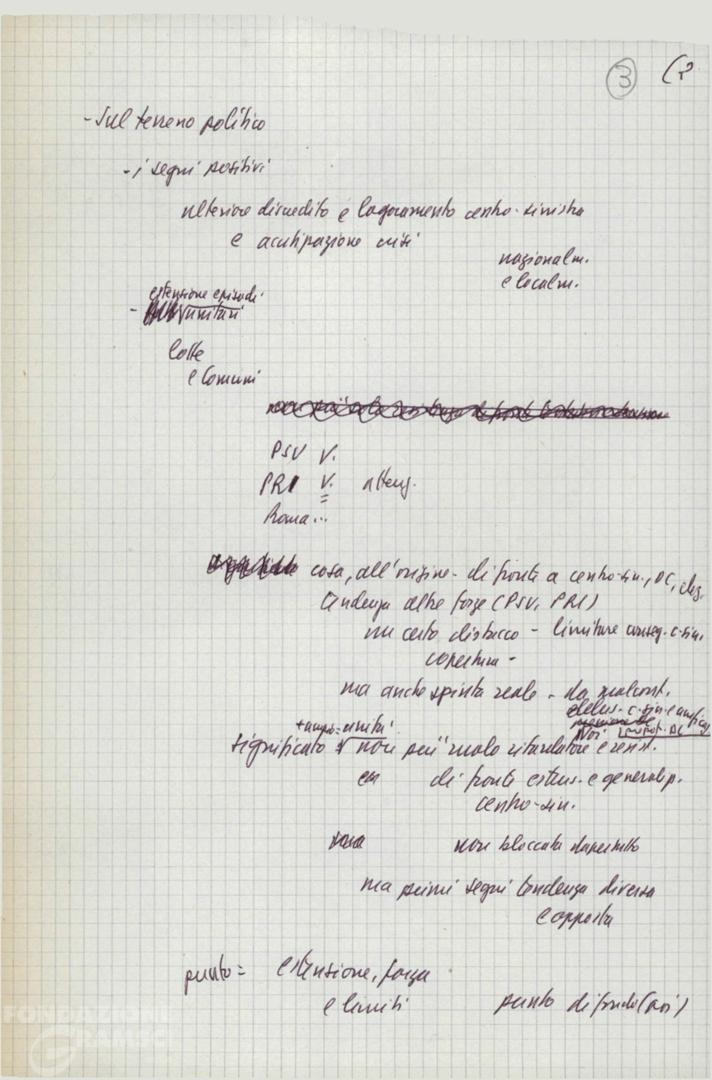 3
- Sul terreno politico
- i segni positivi
ulteriore discredito e logoramento centro-sinistra
e acutizzazione crisi
nazionalm.
e localm.
estensione episodi
- unitari
Lotte
e Comuni
PSU V.
PRI V. atteg.
Roma...
cosa, all'origine - di fronte a centro-sin., DC,
tendenza altre forze (PSU, PRI)
un certo distacco - limitare conseg. c-sin.
copertura -
ma anche spinta reale - da malcont.
delus. c-sin. e
Noi
+ ampio = unità
significato non più ruolo e resist.
di fronte estens. e generalizz.
centro-sin.
non bloccata
ma primi segni tendenza diversa
e opposta
punto = estensione, forza
e limiti punto di fondo (noi)
FON
GRAMSCI